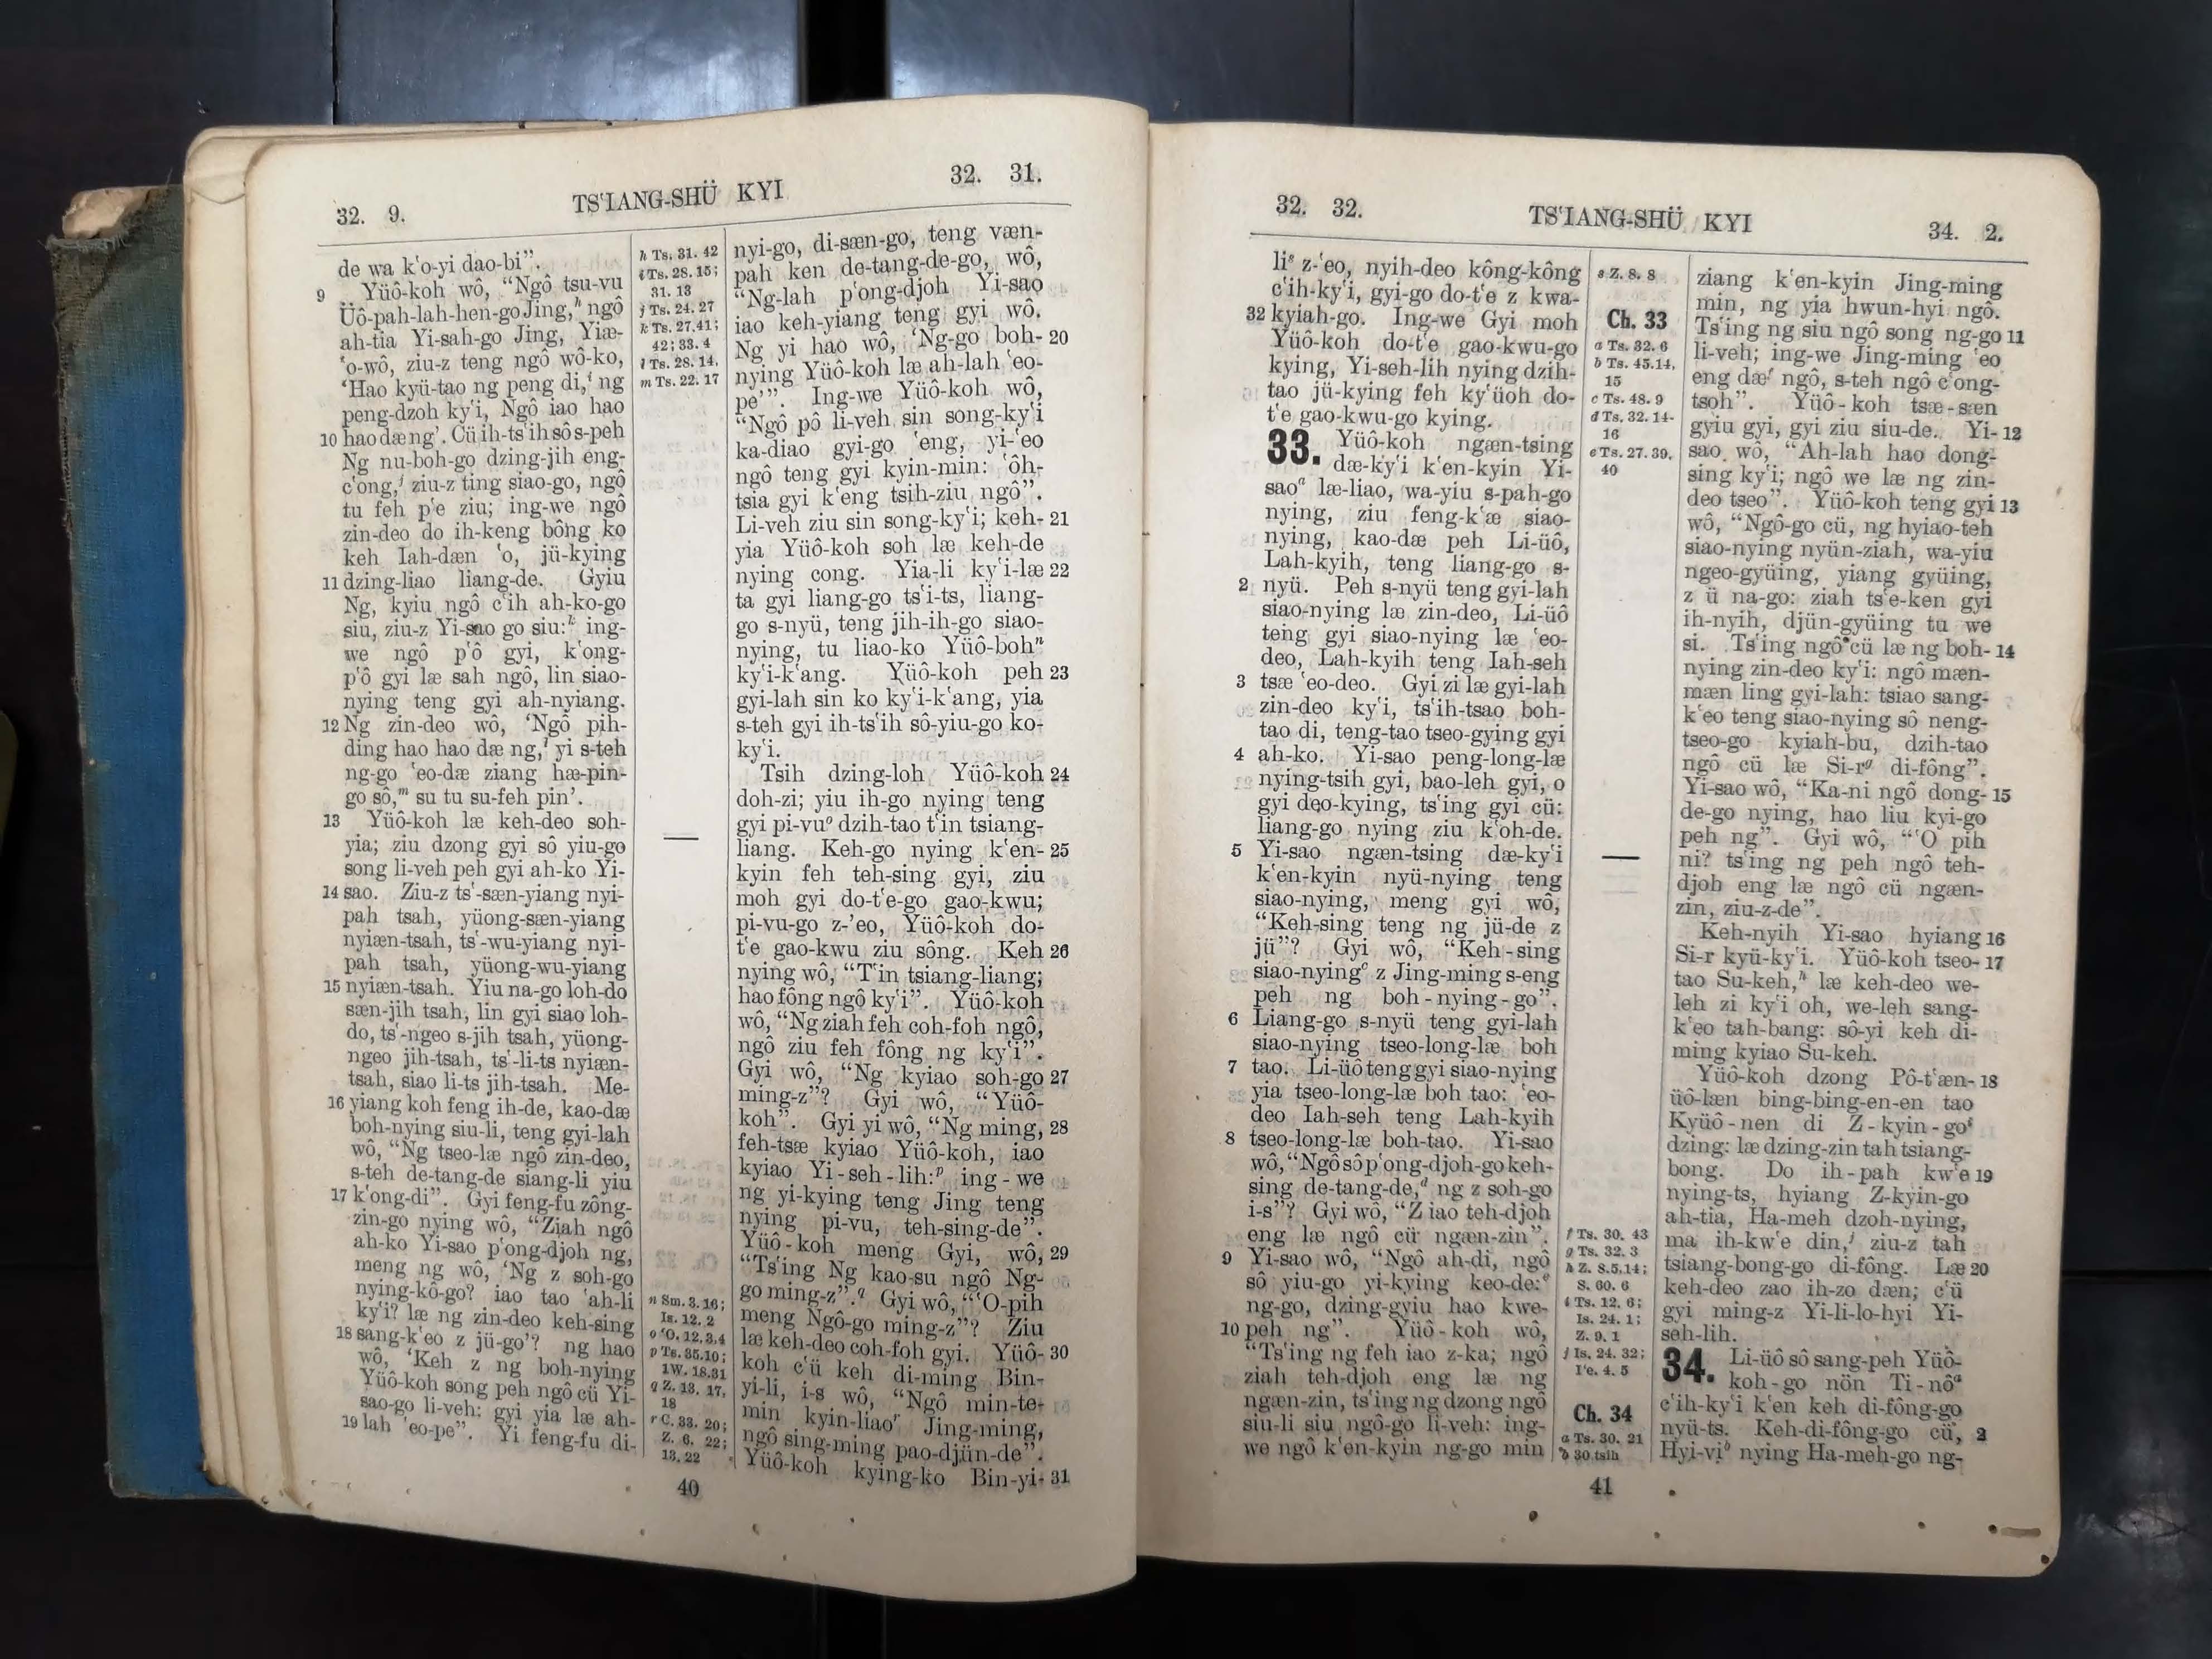 32. 9.
TSʻIANG-SHÜ KYI
32. 31.
de wa kʻo-yi dao-bi”.
9 Yüô-koh wô, “Ngô tsu-vu
Üô-pah-lah-hen-go Jing,ʰ ngô
ah-tia Yi-sah-go Jing, Yiæ-
ʻo-wô, ziu-z teng ngô wô-ko,
‘Hao kyü-tao ng peng di,ⁱ ng
peng-dzoh kyʻi, Ngô iao hao
10 hao dæng’. Cü ih-tsʻih sô s-peh
Ng nu-boh-go dzing-jih eng-
cʻong,ʲ ziu-z ting siao-go, ngô
tu feh pʻe ziu; ing-we ngô
zin-deo do ih-keng bông ko
keh Iah-dæn ʻo, jü-kying
11 dzing-liao liang-de. Gyiu
Ng, kyiu ngô cʻih ah-ko-go
siu, ziu-z Yi-sao go siu:ᵏ ing-
we ngô pʻô gyi, kʻong-
pʻô gyi læ sah ngô, lin siao-
nying teng gyi ah-nyiang.
12 Ng zin-deo wô, ‘Ngô pih-
ding hao hao dæ ng,ˡ yi s-teh
ng-go ʻeo-dæ ziang hæ-pin-
go sô,ᵐ su tu su-feh pin’.
13 Yüô-koh læ keh-deo soh-
yia; ziu dzong gyi sô yiu-go
song li-veh peh gyi ah-ko Yi-
14 sao. Ziu-z tsʻ-sæn-yiang nyi-
pah tsah, yüong-sæn-yiang
nyiæn-tsah, tsʻ-wu-yiang nyi-
pah tsah, yüong-wu-yiang
15 nyiæn-tsah. Yiu na-go loh-do
sæn-jih tsah, lin gyi siao loh-
do, tsʻ-ngeo s-jih tsah, yüong-
ngeo jih-tsah, tsʻ-li-ts nyiæn-
tsah, siao li-ts jih-tsah. Me-
16 yiang koh feng ih-de, kao-dæ
boh-nying siu-li, teng gyi-lah
wô, “Ng tseo-læ ngô zin-deo,
s-teh de-tang-de siang-li yiu
17 kʻong-di”. Gyi feng-fu zông-
zin-go nying wô, “Ziah ngô
ah-ko Yi-sao pʻong-djoh ng,
meng ng wô, ‘Ng z soh-go
nying-kô-go? iao tao ʻah-li
kyʻi? læ ng zin-deo keh-sing
18 sang-kʻeo z jü-go’? ng hao
wô, ‘Keh z ng boh-nying
Yüô-koh song peh ngô cü Yi-
sao-go li-veh: gyi yia læ ah-
19 lah ʻeo-pe”. Yi feng-fu di-
h Ts. 31. 42
i Ts. 28. 15;
31. 13
j Ts. 24. 27
k Ts. 27. 41;
42; 33. 4
l Ts. 28. 14.
m Ts. 22. 17
n Sm. 3. 16;
Is. 12. 2
o ʻO. 12. 3,4
p Ts. 35. 10;
1W. 18. 31
q Z. 13. 17,
18
r C. 33. 20;
Z. 6. 22;
13. 22
nyi-go, di-sæn-go, teng væn-
pah ken de-tang-de-go, wô,
“Ng-lah pʻong-djoh Yi-sao
iao keh-yiang teng gyi wô.
Ng yi hao wô, ‘Ng-go boh- 20
nying Yüô-koh læ ah-lah ʻeo-
pe’”. Ing-we Yüô-koh wô,
“Ngô pô li-veh sin song-kyʻi
ka-diao gyi-go ʻeng, yi-ʻeo
ngô teng gyi kyin-min: ʻôh-
tsia gyi kʻeng tsih-ziu ngô”.
Li-veh ziu sin song-kyʻi; keh- 21
yia Yüô-koh soh læ keh-de
nying cong. Yia-li kyʻi-læ 22
ta gyi liang-go tsʻi-ts, liang-
go s-nyü, teng jih-ih-go siao-
nying, tu liao-ko Yüô-bohⁿ
kyʻi-kʻang. Yüô-koh peh 23
gyi-lah sin ko kyʻi-kʻang, yia
s-teh gyi ih-tsʻih sô-yiu-go ko-
kyʻi.
Tsih dzing-loh Yüô-koh 24
doh-zi; yiu ih-go nying teng
gyi pi-vuᵒ dzih-tao tʻin tsiang-
liang. Keh-go nying kʻen- 25
kyin feh teh-sing gyi, ziu
moh gyi do-tʻe-go gao-kwu;
pi-vu-go z-ʻeo, Yüô-koh do-
tʻe gao-kwu ziu sông. Keh 26
nying wô, “Tʻin tsiang-liang;
hao fông ngô kyʻi”. Yüô-koh
wô, “Ng ziah feh coh-foh ngô,
ngô ziu feh fông ng kyʻi”.
Gyi wô, “Ng kyiao soh-go 27
ming-z”? Gyi wô, “Yüô-
koh”. Gyi yi wô, “Ng ming, 28
feh-tsæ kyiao Yüô-koh, iao
kyiao Yi-seh-lih:ᵖ ing-we
ng yi-kying teng Jing teng
nying pi-vu, teh-sing-de”.
Yüô-koh meng Gyi, wô, 29
“Tsʻing Ng kao-su ngô Ng-
go ming-z”.ᑫ Gyi wô, “ʻO-pih
meng Ngô-go ming-z”? Ziu
læ keh-deo coh-foh gyi. Yüô- 30
koh cʻü keh di-ming Bin-
yi-li, i-s wô, “Ngô min-te-
min kyin-liaoʳ Jing-ming,
ngô sing-ming pao-djün-de”.
Yüô-koh kying-ko Bin-yi- 31
40
32. 32.
TSʻIANG-SHÜ KYI
34. 2.
liˢ z-ʻeo, nyih-deo kông-kông
cʻih-kyʻi, gyi-go do-tʻe z kwa-
32 kyiah-go. Ing-we Gyi moh
Yüô-koh do-tʻe gao-kwu-go
kying, Yi-seh-lih nying dzih-
tao jü-kying feh kyʻüoh do-
tʻe gao-kwu-go kying.
33. Yüô-koh ngæn-tsing
dæ-kyʻi kʻen-kyin Yi-
saoᵃ læ-liao, wa-yiu s-pah-go
nying, ziu feng-kʻæ siao-
nying, kao-dæ peh Li-üô,
Lah-kyih, teng liang-go s-
2 nyü. Peh s-nyü teng gyi-lah
siao-nying læ zin-deo, Li-üô
teng gyi siao-nying læ ʻeo-
deo, Lah-kyih teng Iah-seh
3 tsæ ʻeo-deo. Gyi zi læ gyi-lah
zin-deo kyʻi, tsʻih-tsao boh-
tao di, teng-tao tseo-gying gyi
4 ah-ko. Yi-sao peng-long-læ
nying-tsih gyi, bao-leh gyi, o
gyi deo-kying, tsʻing gyi cü:
liang-go nying ziu kʻoh-de.
5 Yi-sao ngæn-tsing dæ-kyʻi
kʻen-kyin nyü-nying teng
siao-nying, meng gyi wô,
“Keh-sing teng ng jü-de z
jü”? Gyi wô, “Keh-sing
siao-nyingᶜ z Jing-ming s-eng
peh ng boh-nying-go”.
6 Liang-go s-nyü teng gyi-lah
siao-nying tseo-long-læ boh
7 tao. Li-üô teng gyi siao-nying
yia tseo-long-læ boh tao: ʻeo-
deo Iah-seh teng Lah-kyih
8 tseo-long-læ boh-tao. Yi-sao
wô, “Ngô sô pʻong-djoh-go keh-
sing de-tang-de,ᵈ ng z soh-go
i-s”? Gyi wô, “Z iao teh-djoh
eng læ ngô cü ngæn-zin”.
9 Yi-sao wô, “Ngô ah-di, ngô
sô yiu-go yi-kying keo-de:ᵉ
ng-go, dzing-gyiu hao kwe-
10 peh ng”. Yüô-koh wô,
“Tsʻing ng feh iao z-ka; ngô
ziah teh-djoh eng læ ng
ngæn-zin, tsʻing ng dzong ngô
siu-li siu ngô-go li-veh: ing-
we ngô kʻen-kyin ng-go min
s Z. 8. 8
Ch. 33
a Ts. 32. 6
b Ts. 45. 14,
15
c Ts. 48. 9
d Ts. 32. 14-
16
e Ts. 27. 39,
40
f Ts. 30. 43
g Ts. 32. 3
h Z. 8. 5,14;
S. 60. 6
i Ts. 12. 6;
Is. 24. 1;
Z. 9. 1
j Is. 24. 32;
Iʻe. 4. 5
Ch. 34
a Ts. 30. 21
b 30 tsih
ziang kʻen-kyin Jing-ming
min, ng yia hwun-hyi ngô.
Tsʻing ng siu ngô song ng-go 11
li-veh; ing-we Jing-ming ʻeo
eng dæᶠ ngô, s-teh ngô cʻong-
tsoh”. Yüô-koh tsæ-sæn
gyiu gyi, gyi ziu siu-de. Yi- 12
sao wô, “Ah-lah hao dong-
sing kyʻi; ngô we læ ng zin-
deo tseo”. Yüô-koh teng gyi 13
wô, “Ngô-go cü, ng hyiao-teh
siao-nying nyün-ziah, wa-yiu
ngeo-gyüing, yiang gyüing,
z ü na-go: ziah tsʻe-ken gyi
ih-nyih, djün-gyüing tu we
si. Tsʻing ngô cü læ ng boh- 14
nying zin-deo kyʻi: ngô mæn-
mæn ling gyi-lah: tsiao sang-
kʻeo teng siao-nying sô neng-
tseo-go kyiah-bu, dzih-tao
ngô cü læ Si-rᵍ di-fông”.
Yi-sao wô, “Ka-ni ngô dong- 15
de-go nying, hao liu kyi-go
peh ng”. Gyi wô, “ʻO pih
ni? tsʻing ng peh ngô teh-
djoh eng læ ngô cü ngæn-
zin, ziu-z-de”.
Keh-nyih Yi-sao hyiang 16
Si-r kyü-kyʻi. Yüô-koh tseo- 17
tao Su-keh,ʰ læ keh-deo we-
leh zi kyʻi oh, we-leh sang-
kʻeo tah-bang: sô-yi keh di-
ming kyiao Su-keh.
Yüô-koh dzong Pô-tʻæn- 18
üô-læn bing-bing-en-en tao
Kyüô-nen di Z-kyin-goⁱ
dzing: læ dzing-zin tah tsiang-
bong. Do ih-pah kwʻe 19
nying-ts, hyiang Z-kyin-go
ah-tia, Ha-meh dzoh-nying,
ma ih-kwʻe din,ʲ ziu-z tah
tsiang-bong-go di-fông. Læ 20
keh-deo zao ih-zo dæn; cʻü
gyi ming-z Yi-li-lo-hyi Yi-
seh-lih.
34. Li-üô sô sang-peh Yüô-
koh-go nön Ti-nôᵃ
cʻih-kyʻi kʻen keh di-fông-go
nyü-ts. Keh-di-fông-go cü, 2
Hyi-viᵇ nying Ha-meh-go ng-
41